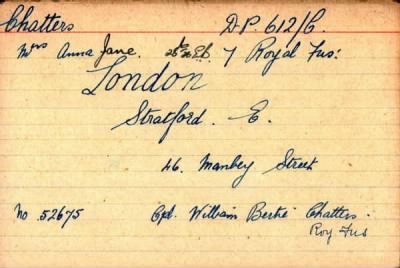 Chatters D.P. 612/C.
Mrs Anna Jane. 7 Royal Fus:
London
Stratford. E.
46. Manbey Street
No 52675 Cpl. William Bertie Chatters.
Roy Fus